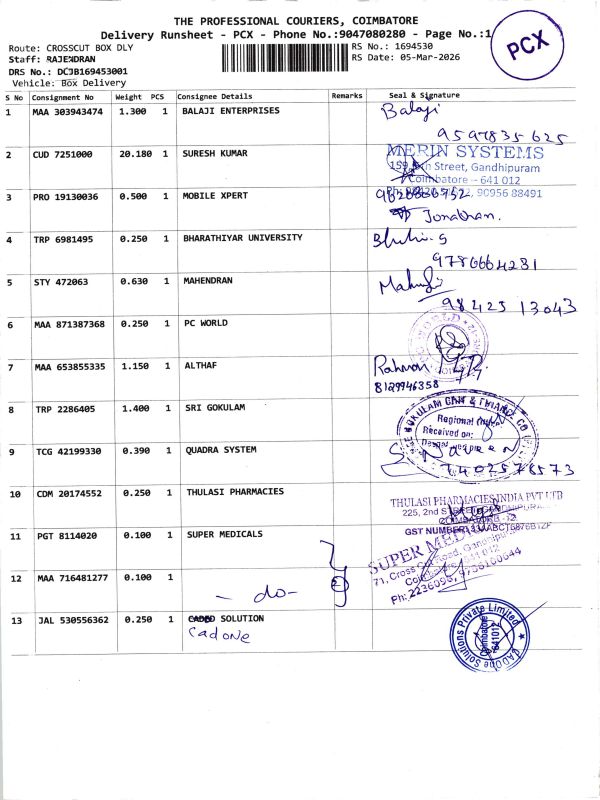 THE PROFESSIONAL COURIERS, COIMBATORE
Delivery Runsheet - PCX - Phone No.:9047080280 - Page No.:1
PCX
Route: CROSSCUT BOX DLY
RS No.: 1694530
Staff: RAJENDRAN
RS Date: 05-Mar-2026
DRS No.: DCJB169453001
Vehicle: Box Delivery
S No Consignment No Weight PCS Consignee Details Remarks Seal & Signature
1 MAA 303943474 1.300 1 BALAJI ENTERPRISES Balaji
9597835625
2 CUD 7251000 20.180 1 SURESH KUMAR MERIN SYSTEMS
Street, Gandhipuram
Coimbatore - 641 012
90956 88491
3 PRO 19130036 0.500 1 MOBILE XPERT
Jonathan.
4 TRP 6981495 0.250 1 BHARATHIYAR UNIVERSITY
9786664281
5 STY 472063 0.630 1 MAHENDRAN
98425 13043
6 MAA 871387368 0.250 1 PC WORLD
7 MAA 653855335 1.150 1 ALTHAF Rahman
8129946358
8 TRP 2286405 1.400 1 SRI GOKULAM
Regional
Received on:
9 TCG 42199330 0.390 1 QUADRA SYSTEM
7402578573
10 CDM 20174552 0.250 1 THULASI PHARMACIES THULASI PHARMACIES INDIA PVT LTD
225, 2nd
COIMBATORE - 12
GST NUMBER
11 PGT 8114020 0.100 1 SUPER MEDICALS SUPER
71, Cross Cut Road, Gandhipuram
Coimbatore - 641 012
Ph: 2236095,
12 MAA 716481277 0.100 1 - do - 2
13 JAL 530556362 0.250 1 SOLUTION
Cadone
CADone Solutions Private Limited
Coimbatore
641012